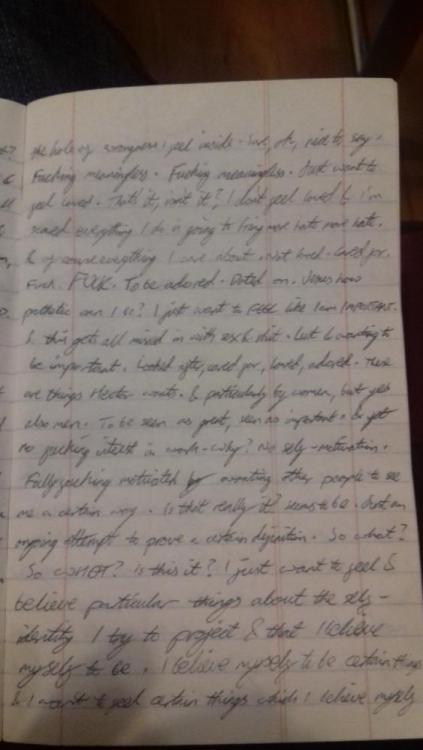 the hole of wrongness I feel inside. Sure, ok, nice to say.
Fucking meaningless. Fucking meaningless. Just want to
feel loved. That's it, isn't it? I don't feel loved & I'm
scared everything I do is going to bring more hate more hate.
& of course everything I care about. Not loved - cared for.
Fuck. FUCK. To be adored. Doted on. Jesus how
pathetic can I be? I just want to FEEL like I am IMPORTANT.
& this gets all mixed in with sex & shit. Lust & wanting to
be important. Looked after, cared for, loved, adored. These
are things Hector wants. & particularly by women, but yes
also men. To be seen as great, seen as important. & yet
no fucking interest in work - why? No self-motivation.
Fully fucking motivated by wanting other people to see
me a certain way. Is that really it? Seems to be. Just an
ongoing attempt to prove a certain So what?
So WHAT? Is this it? I just want to feel &
believe particular things about the self-
identity I try to project & that I believe
myself to be. I believe myself to be certain things
& I want to feel certain things which I believe myself